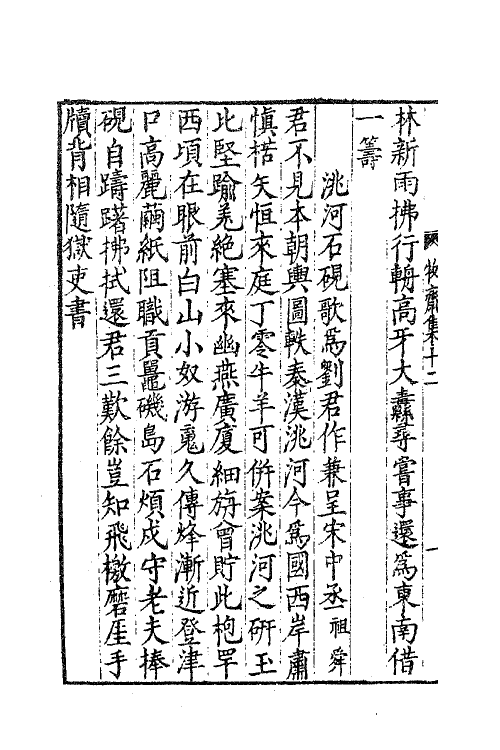 牧齋集十二
一
林新雨拂行軿高牙大纛尋嘗事還爲東南借
一籌
洮河石硯歌爲劉君作兼呈宋中丞祖舜
君不見本朝輿圖軼秦漢洮河今爲國西岸肅
愼楛矢恒來庭丁零牛羊可併案洮河之硏玉
比堅踰羌絶塞來幽燕廣廈細旃曾貯此枹罕
西頃在眼前白山小奴游䰟久傳烽漸近登津
口高麗繭紙阻職貢鼉磯島石煩戍守老夫捧
硯自躊躇拂拭還君三歎餘豈知飛檄磨崖手
牘背相隨獄吏書